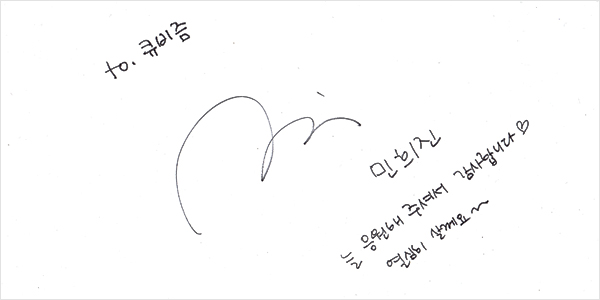 to. 큐비즘
민희진
늘 응원해 주셔서 감사합니다♡
열심히 살께요~